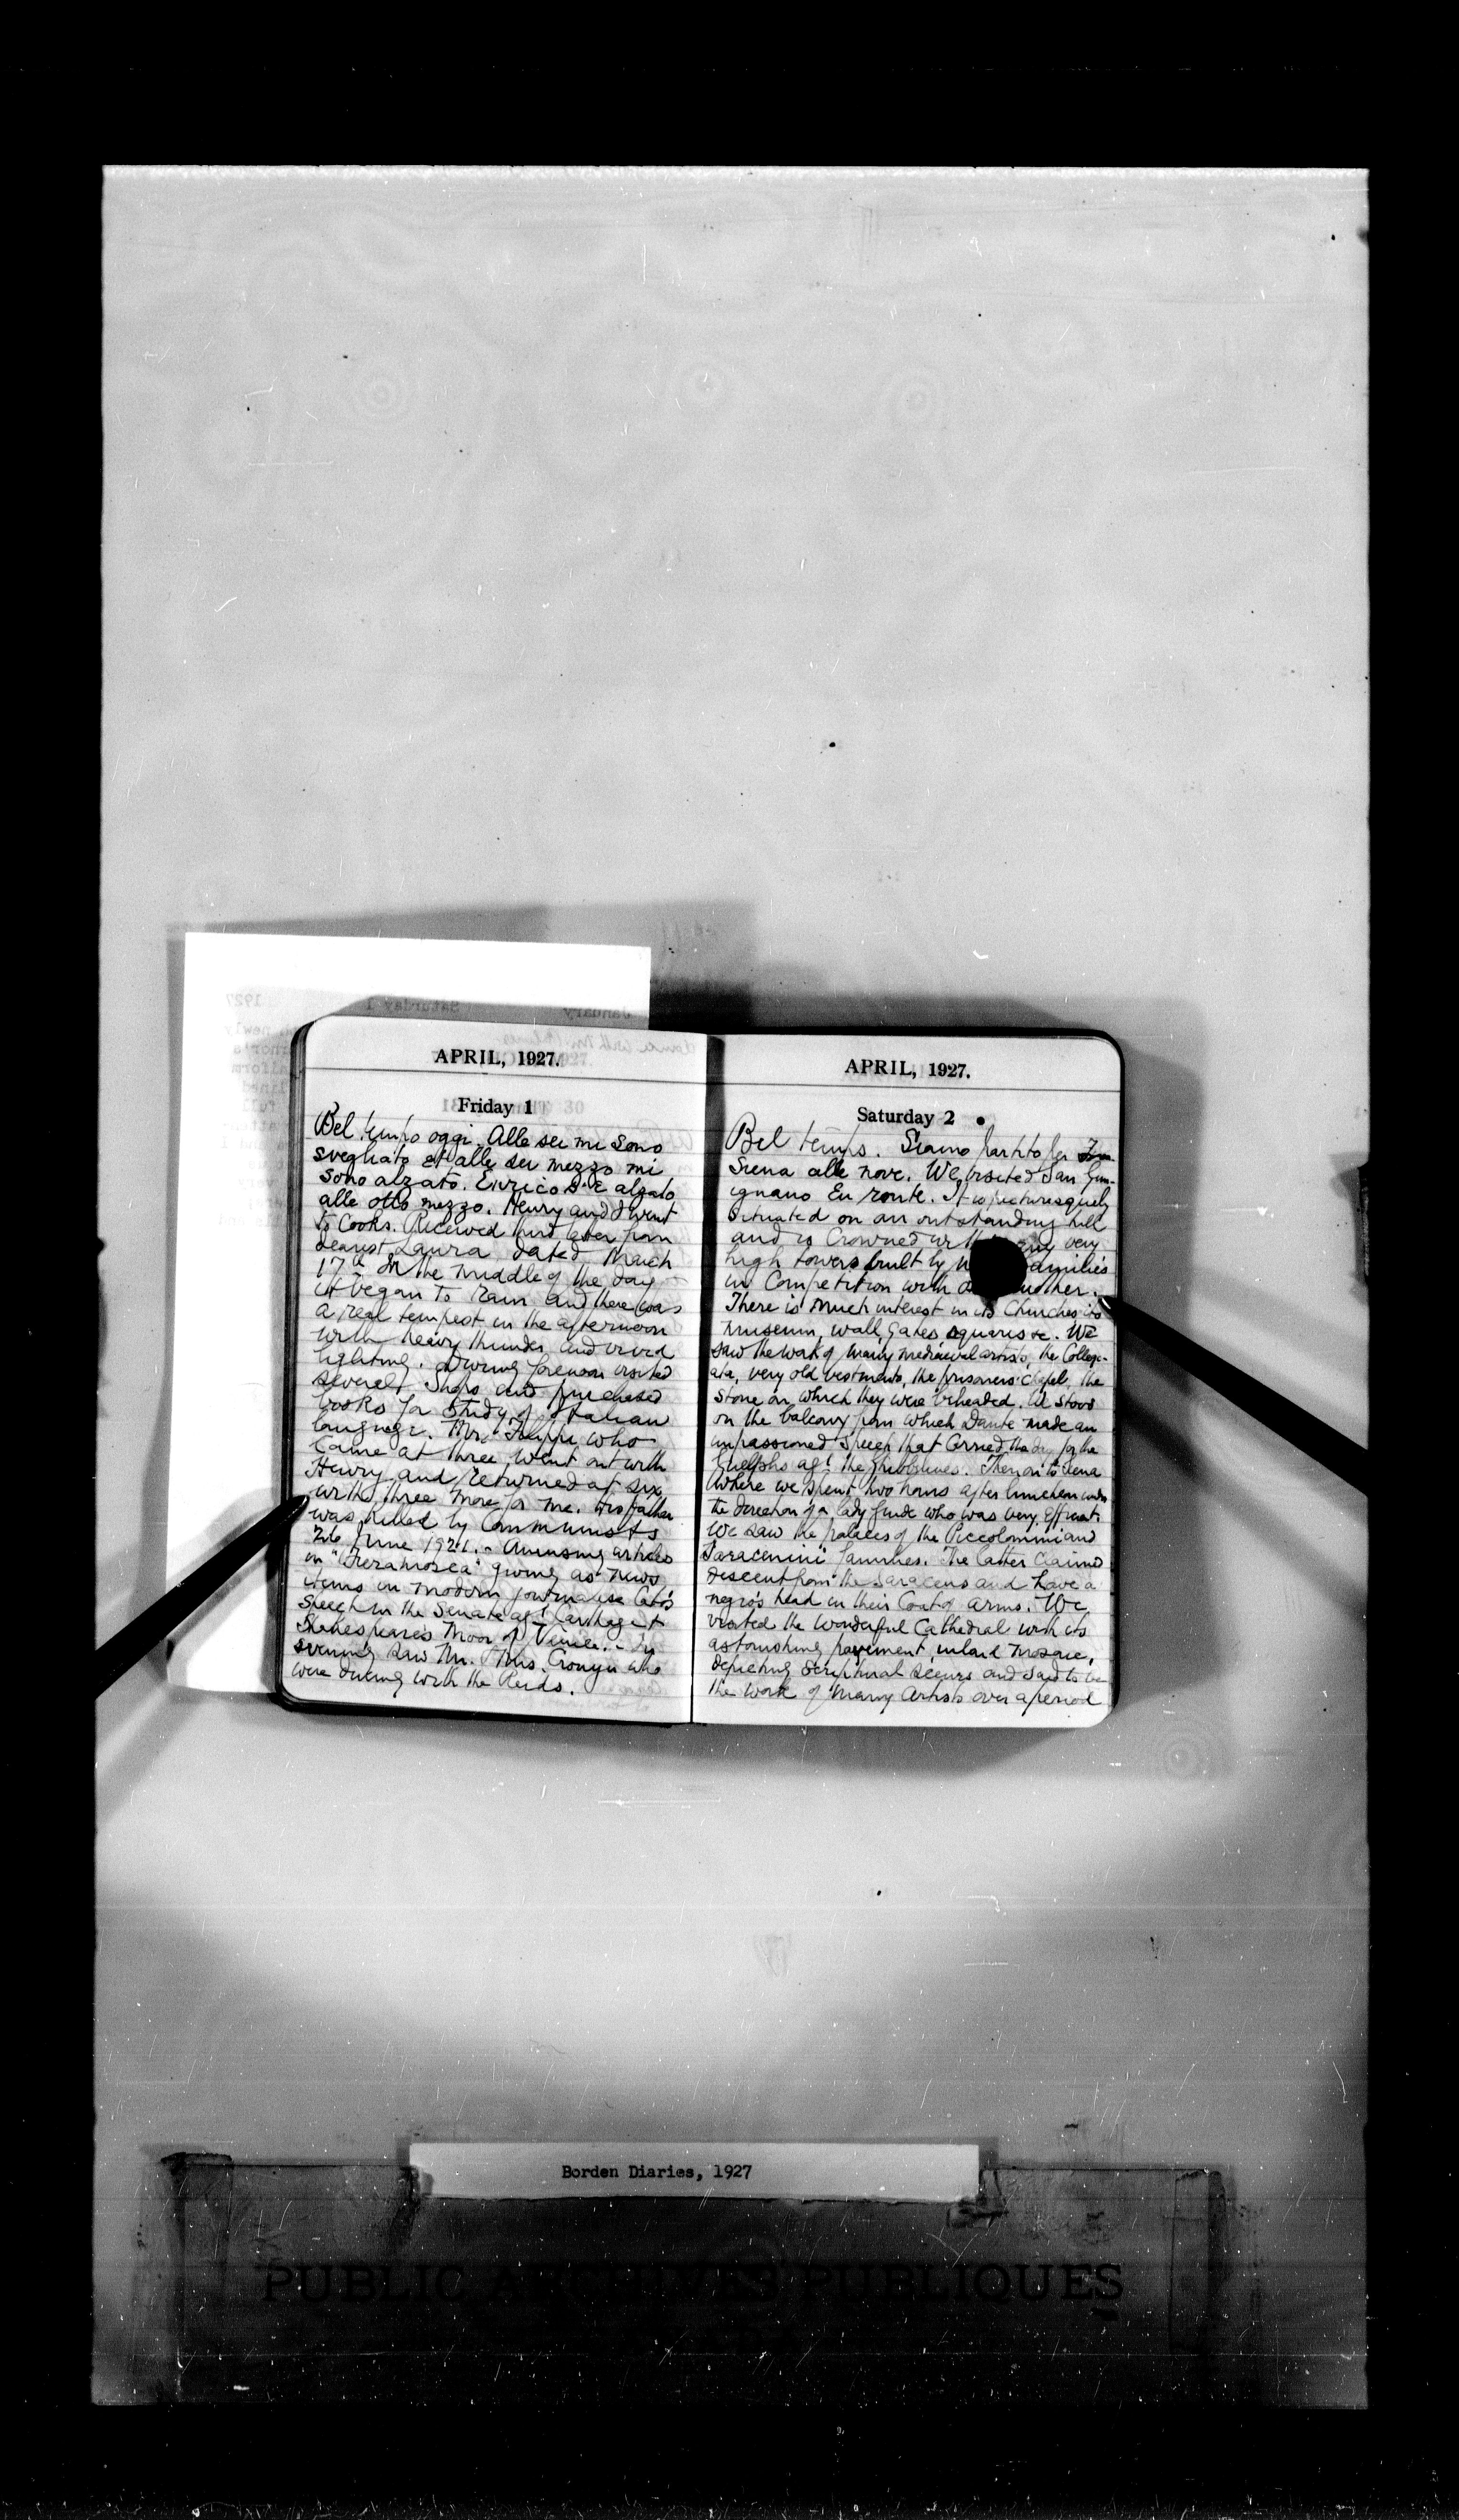 APRIL, 1927.
Friday 1
Bel tempo oggi. Alle sei mi sono
svegliato et alle sei mezzo mi
sono alzato. Enrico s'è alzato
alle otto mezzo. Henry and I went
to Cooks. Received third letter from
dearest Laura dated March
17th In the middle of the day
it began to rain and there was
a real tempest in the afternoon
with heavy thunder and vivid
lighting. During forenoon visited
several shops and purchased
books for study of Italian
language. Mr. who
came at three went out with
Henry and returned at six
with three more for me. His father
was killed by Communists
26 June 1921. - Amusing articles
in "Fieramosca" giving as news
items in modern journalese Cato's
speech in the Senate agt Carthage &
Shakespeare's Moor of Venice. - In
evening saw Mr. & Mrs. Cronyn who
were dining with the Reids.
APRIL, 1927.
Saturday 2
Bel tempo. Siamo partito per
Siena alle nove. We visited San Gim-
ignano en route. It is picturesquely
situated on an outstanding hill
and is crowned with many very
high towers built by families
in competition with another.
There is much interest in its Churches its
museum, wall, gates, squares &c. We
saw the work of many mediaeval artists, the Collegi-
ata, very old vestments, the prisoners' chapel, the
stone on which they were beheaded. We stood
on the balcony from which Dante made an
impassioned speech that carried the day for the
Guelphs agt the Ghibelines. Then on to Siena
where we spent two hours after luncheon under
the direction of a lady guide who was very efficient.
We saw the palaces of the Piccolomini and
Saracenini families. The latter claims
descent from the Saracens and have a
negro's head in their Coat of arms. We
visited the wonderful Cathedral with its
astonishing pavement, inlaid mosaic,
depicting scriptural scenes and said to be
the work of many artists over a period
Borden Diaries, 1927
PUBLIC ARCHIVES PUBLIQUES